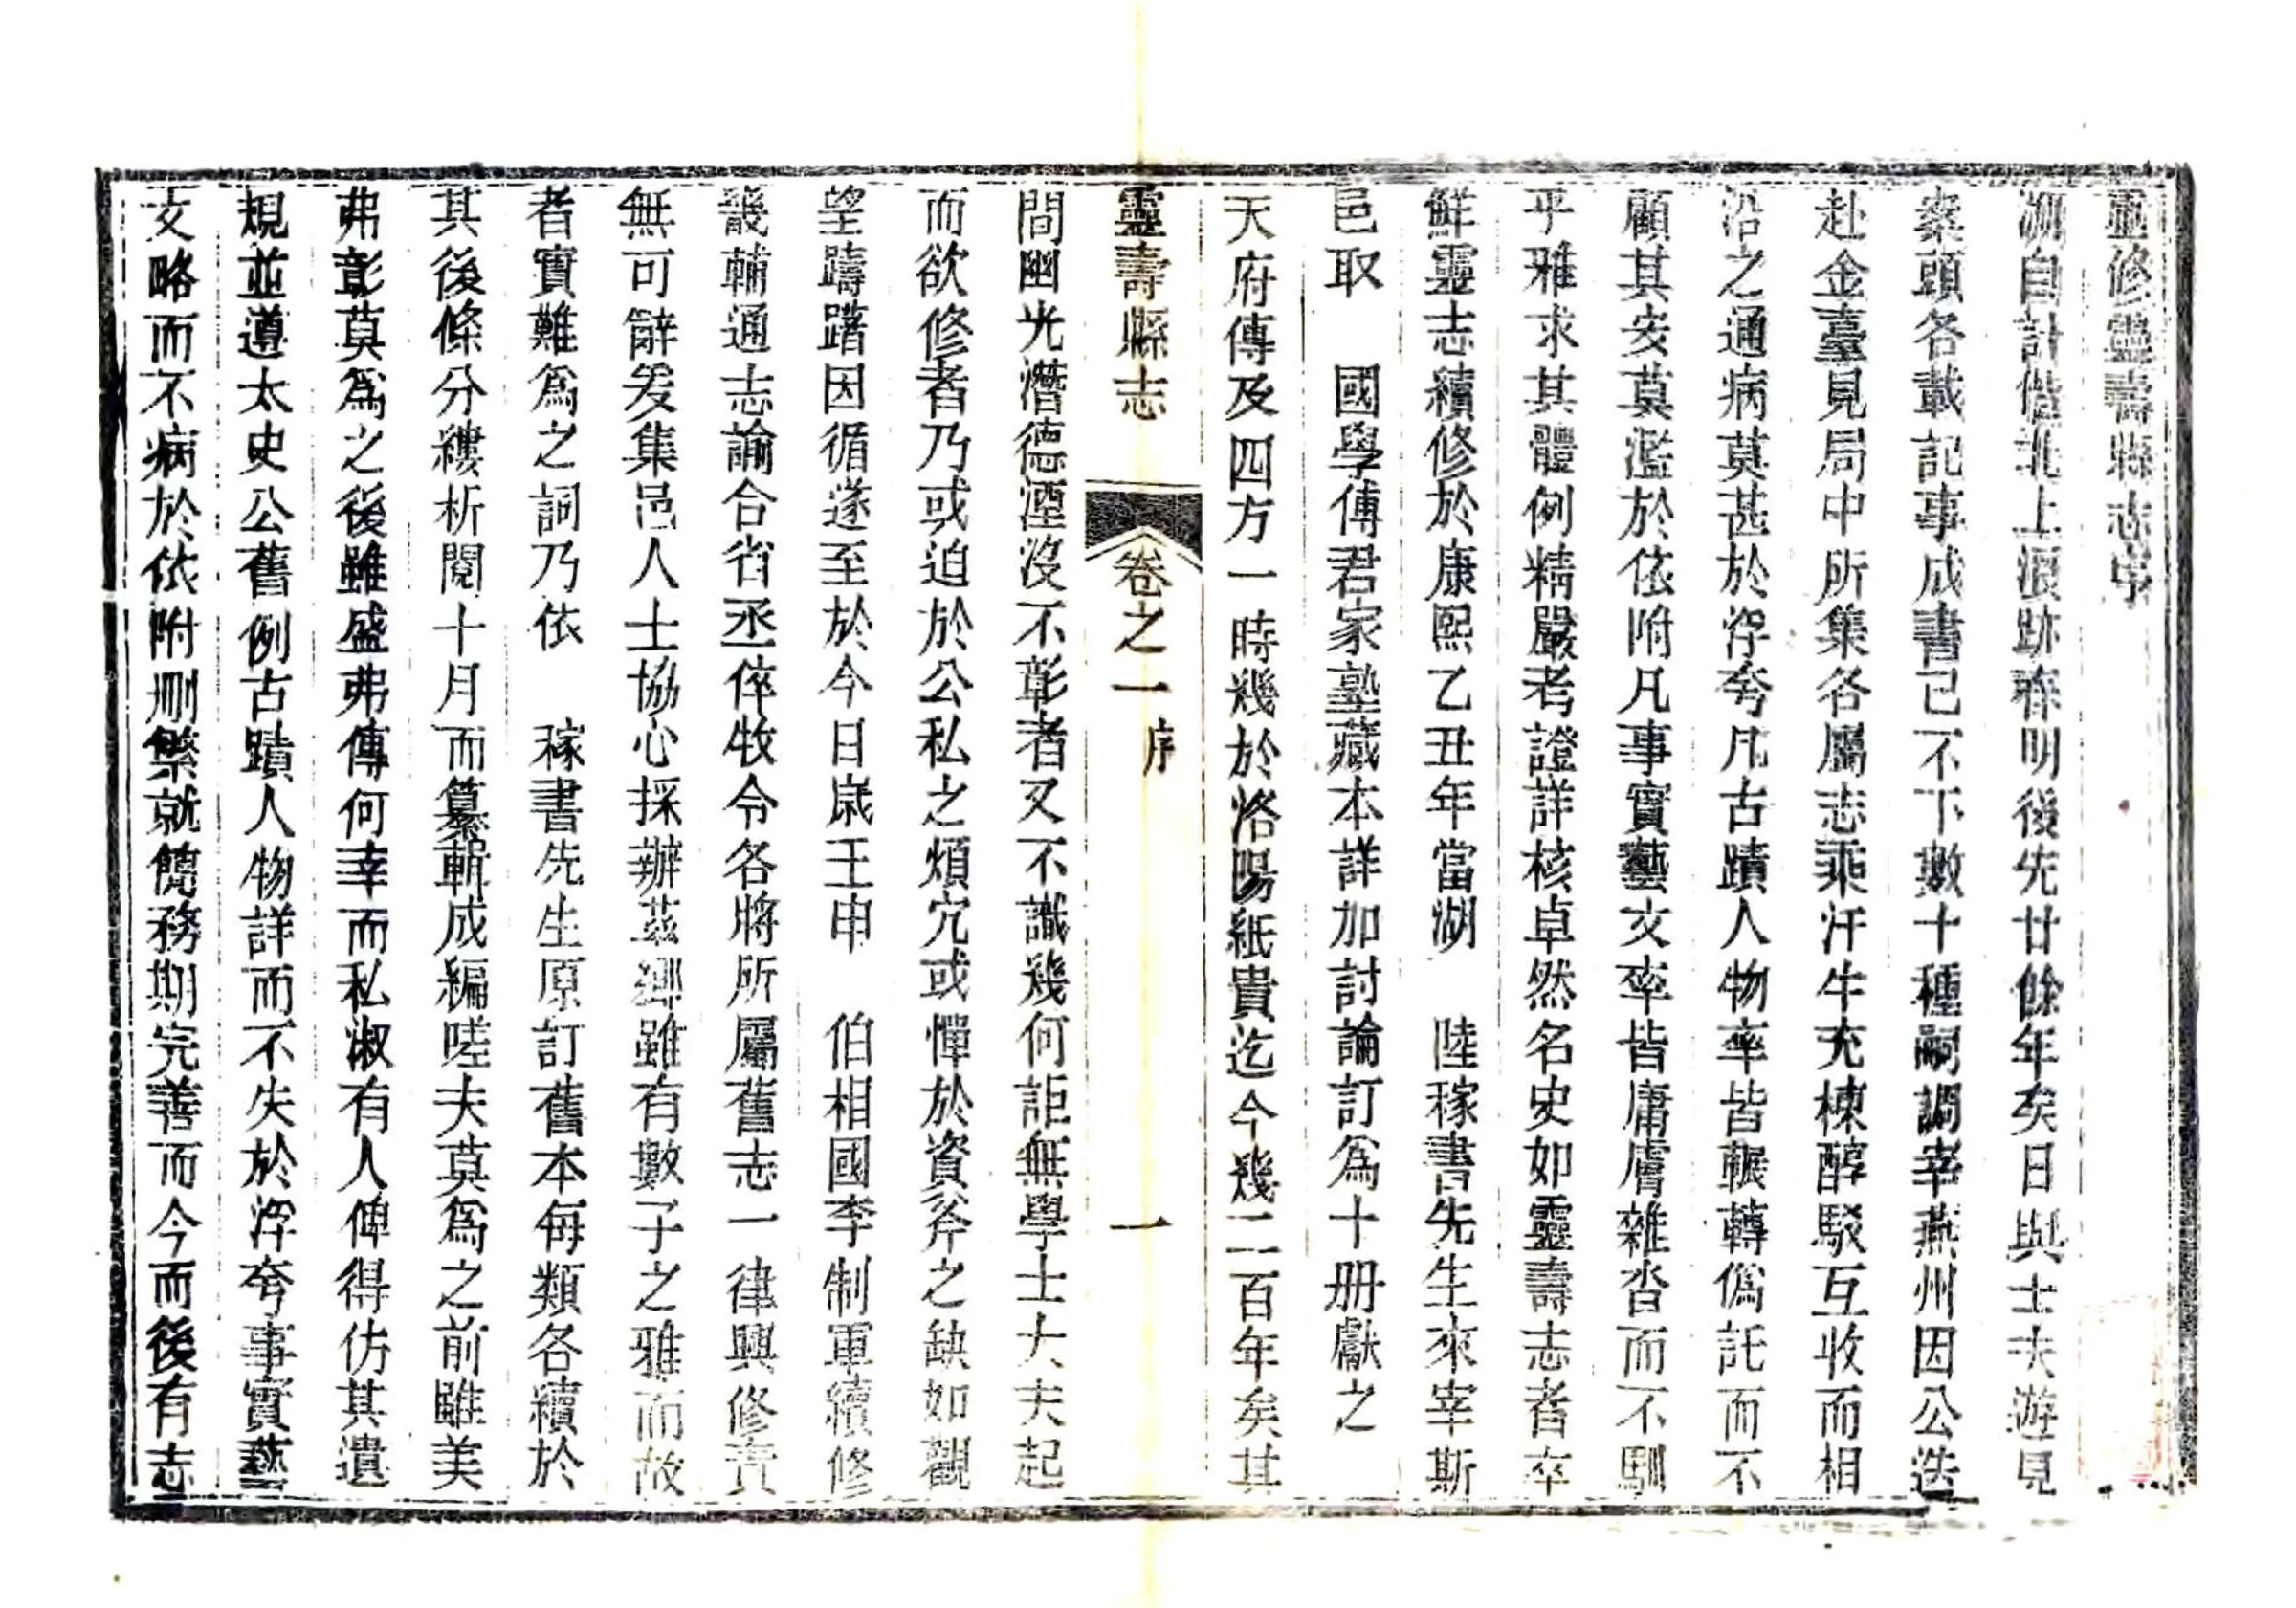 重修靈壽縣志序
溯自計偕北上浪跡春明後先廿餘年矣日與士夫遊見
案頭各載記事成書已不下數十種嗣調宰燕州因公迭
赴金臺見局中所集各屬志乘汗牛充棟醇駁互收而相
沿之通病莫甚於浮夸凡古蹟人物率皆輾轉僞託而不
顧其安莫濫於依附凡事實藝文率皆庸膚雜沓而不馴
乎雅求其體例精嚴考證詳核卓然名史如靈壽志者卒
鮮靈志續修於康熙乙丑年當湖 陸稼書先生來宰斯
邑取 國學傅君家塾藏本詳加討論訂爲十册獻之
天府傳及四方一時幾於洛陽紙貴迄今幾二百年矣其
靈壽縣志 卷之一 序 一
間幽光潛德湮沒不彰者又不識幾何詎無學士大夫起
而欲修者乃或迫於公私之煩冗或憚於資斧之缺如觀
望躊躇因循遂至於今日歲壬申 伯相國李制軍續修
畿輔通志諭合省丞倅牧令各將所屬舊志一律興修責
無可辭爰集邑人士協心採辦茲鄉雖有數子之雅而故
者實難爲之詞乃依 稼書先生原訂舊本每類各續於
其後條分縷析閱十月而纂輯成編嗟夫莫爲之前雖美
弗彰莫爲之後雖盛弗傳何幸而私淑有人俾得仿其遺
規並遵太史公舊例古蹟人物詳而不失於浮夸事實藝
文略而不病於依附刪繁就簡務期完善而今而後有志